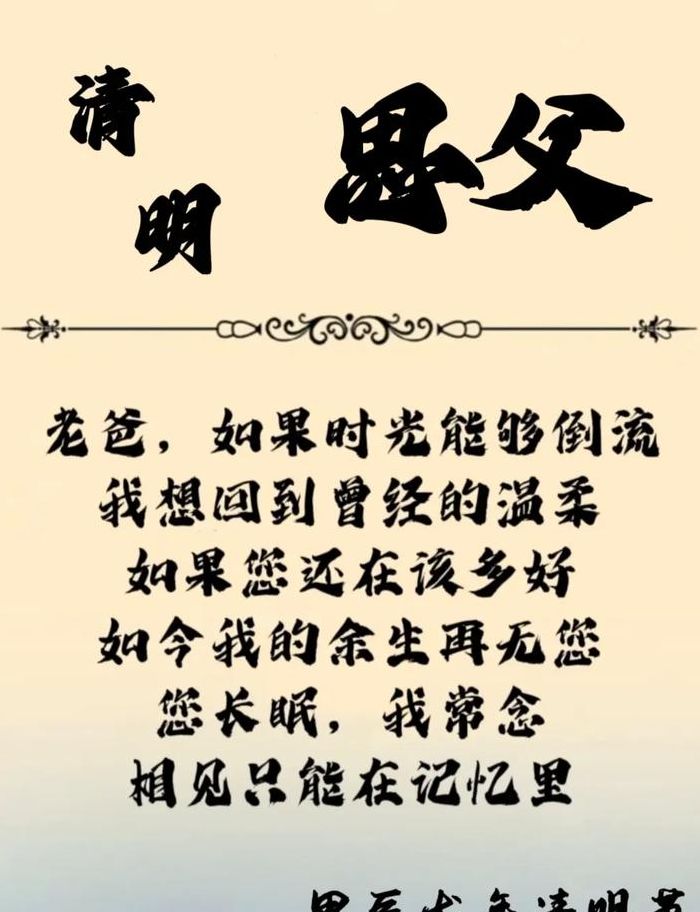 清明
思父
老爸，如果时光能够倒流
我想回到曾经的温柔
如果您还在该多好
如今我的余生再无您
您长眠，我常念
相见只能在记忆里
甲辰龙年清明节